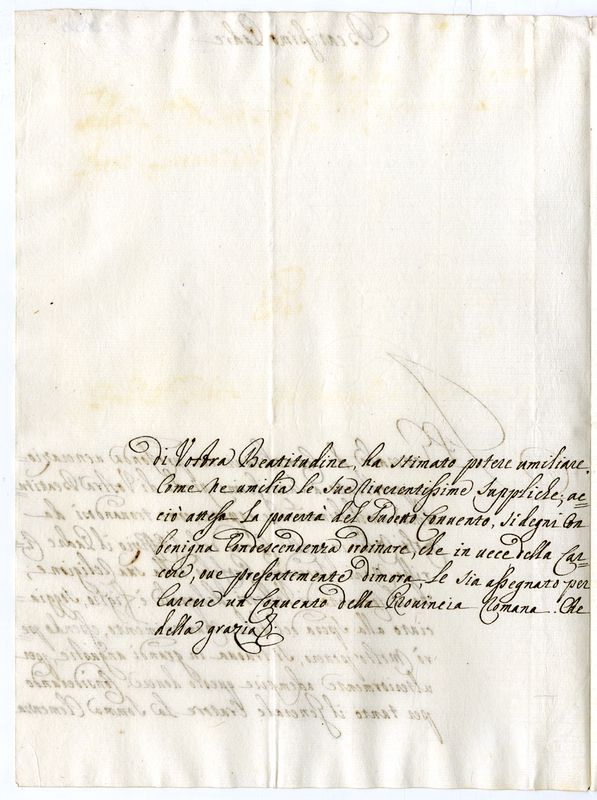 di Vostra Beatitudine, ha stimato potere umiliare,
Come Ne umilia le sue riverentissime suppliche, ac=
ciò attesa La povertà del sudetto Convento, si degni Con
benigna Condescendenza ordinare, che in vece della Car=
cere, ove presentemente dimora, Le sia assegnato per
Carcere un Convento della Provincia Romana. Che
della grazia